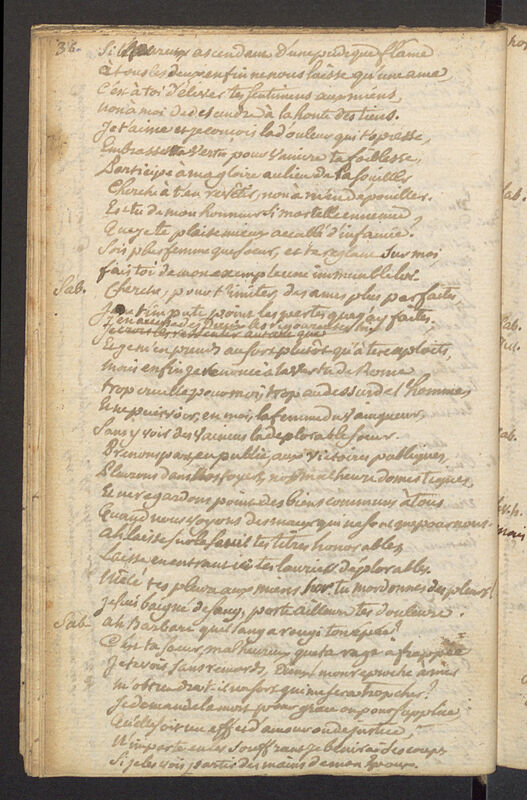 36.
Si l'heureux ascendant d'une pudique flame
à tous les deux enfin ne nous laisse qu'une ame,
C'est à toi d'élever tes sentimens aux miens,
non à moi de descendre à la honte des tiens.
Je t'aime et je connois la douleur qui te presse,
Embrasse ma vertu pour vaincre ta foiblesse,
Participe à ma gloire au lieu de la souiller
Cherche à t'en revetir, non à m'en dépouiller.
Es-tu de mon honneur si mortelle ennemie,
Que je te plaise mieux accablé d'infamie.
Sois plus femme que soeur, et te reglant sur moi
fais toi de mon exemple une immuable loi.
Sab. Cherche, pour t'imiter, des ames plus parfaites
Je ne t'impute point les pertes que j'ay faites.
J'en ai
Et je m'en prends au sort plutôt qu'à tes exploits,
mais enfin je renonce à la vertu de Rome
trop cruelle pour moi, trop au dessus de l'homme,
Et ne puis voir, en moi, la femme du vainqueur,
Sans y voir des vaincus la deplorable soeur.
Prenons part, en public, aux victoires publiques,
Pleurons dans nos foyers, nos malheurs domestiques,
Et ne regardons point des biens communs à tous
Quand nous voyons des maux qui ne sont que pour nous.
ah laisse sur le seuil tes titres honorables
Laisse en entrant ici tes lauriers déplorables.
Mêle tes pleurs aux miens hor. tu m'ordonnes des pleurs!
je suis baigné de sang, porte ailleurs tes douleurs.
Sab ah Barbare quel sang a rougi ton épée?
C'est ta soeur, malheureux que ta rage a frappée
Je te vois sans remords,
m'obtiendra t-il
Je demande la mort pour grace ou pour supplice
Qu'elle soit un effet d'amour ou de justice,
N'importe
Si je les vois partir des mains de mon époux.